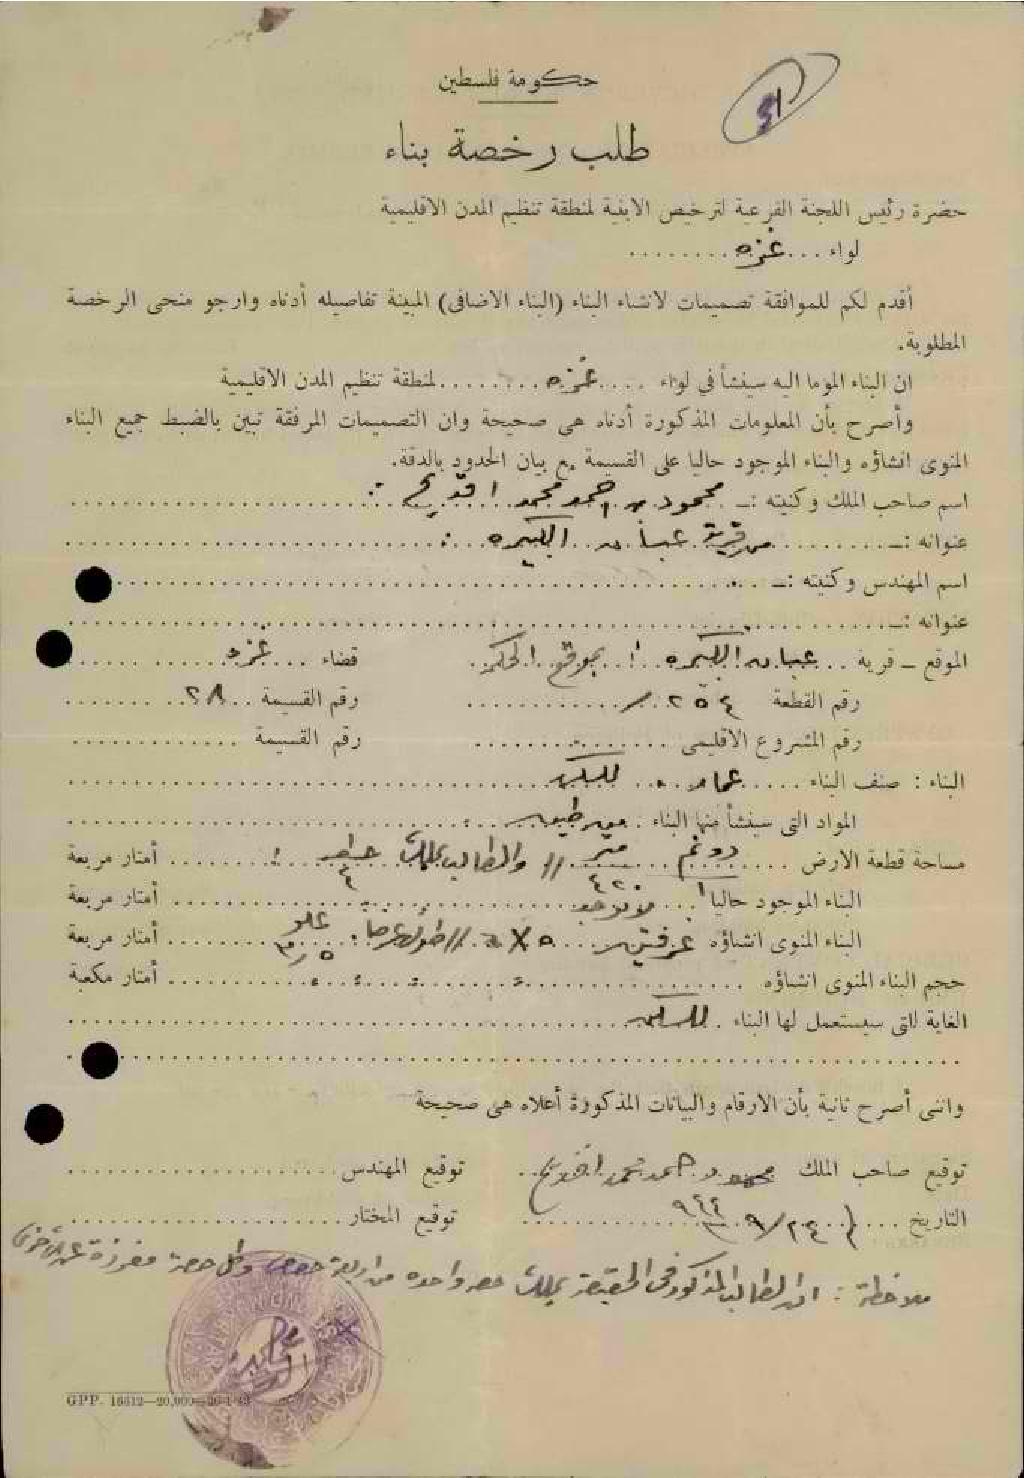 حكومة فلسطين
طلب رخصة بناء
حضرة رئيس اللجنة الفرعية لترخيص الابنية لمنطقة تنظيم المدن الاقليمية
لواء ... غزه
أقدم لكم للموافقة تصميمات لانشاء البناء (البناء الاضافى) المبينة تفاصيله أدناه وارجو منحى الرخصة
المطلوبة.
ان البناء الموما اليه سينشأ في لواء .... غزه ........ لمنطقة تنظيم المدن الاقليمية
وأصرح بأن المعلومات المذكورة أدناه هى صحيحة وان التصميمات المرفقة تبين بالضبط جميع البناء
المنوى انشاؤه والبناء الموجود حاليا على القسيمة مع بيان الحدود بالدقة.
اسم صاحب الملك وكنيته :ـ محمود احمد محمد
عنوانه :ـ من قرية عبسان الكبيره
اسم المهندس وكنيته :ـ
عنوانه :ـ
الموقع ـ قرية .. عبسان الكبيره بموقع الحكر قضاء ... غزه
رقم القطعة ٢٥٤ رقم القسيمة ٢٨
رقم المشروع الاقليمى ........ رقم القسيمة
البناء : صنف البناء ..... عمار للسكن
المواد التى سينشأ منها البناء : من طين
مساحة قطعة الارض دونم متر والطالب يملك أمتار مربعة
البناء الموجود حاليا لا يوجد أمتار مربعة
البناء المنوى انشاؤه غرفتين ٥ X ٥ طول عرضا علو أمتار مربعة
حجم البناء المنوى انشاؤه ........ أمتار مكعبة
الغاية التى سيستعمل لها البناء . للسكن
واننى أصرح ثانية بأن الارقام والبيانات المذكورة أعلاه هى صحيحة
توقيع صاحب الملك محمود احمد محمد توقيع المهندس
التاريخ ٢٤/٩ ٩٤٤ توقيع المختار
ملاحظة : ان الطالب المذكور في الحقيقة يملك حصه واحده من اربعة حصص وكل حصة مفرزة عن الاخرى
GPP. 16612—20,000—26-1-43